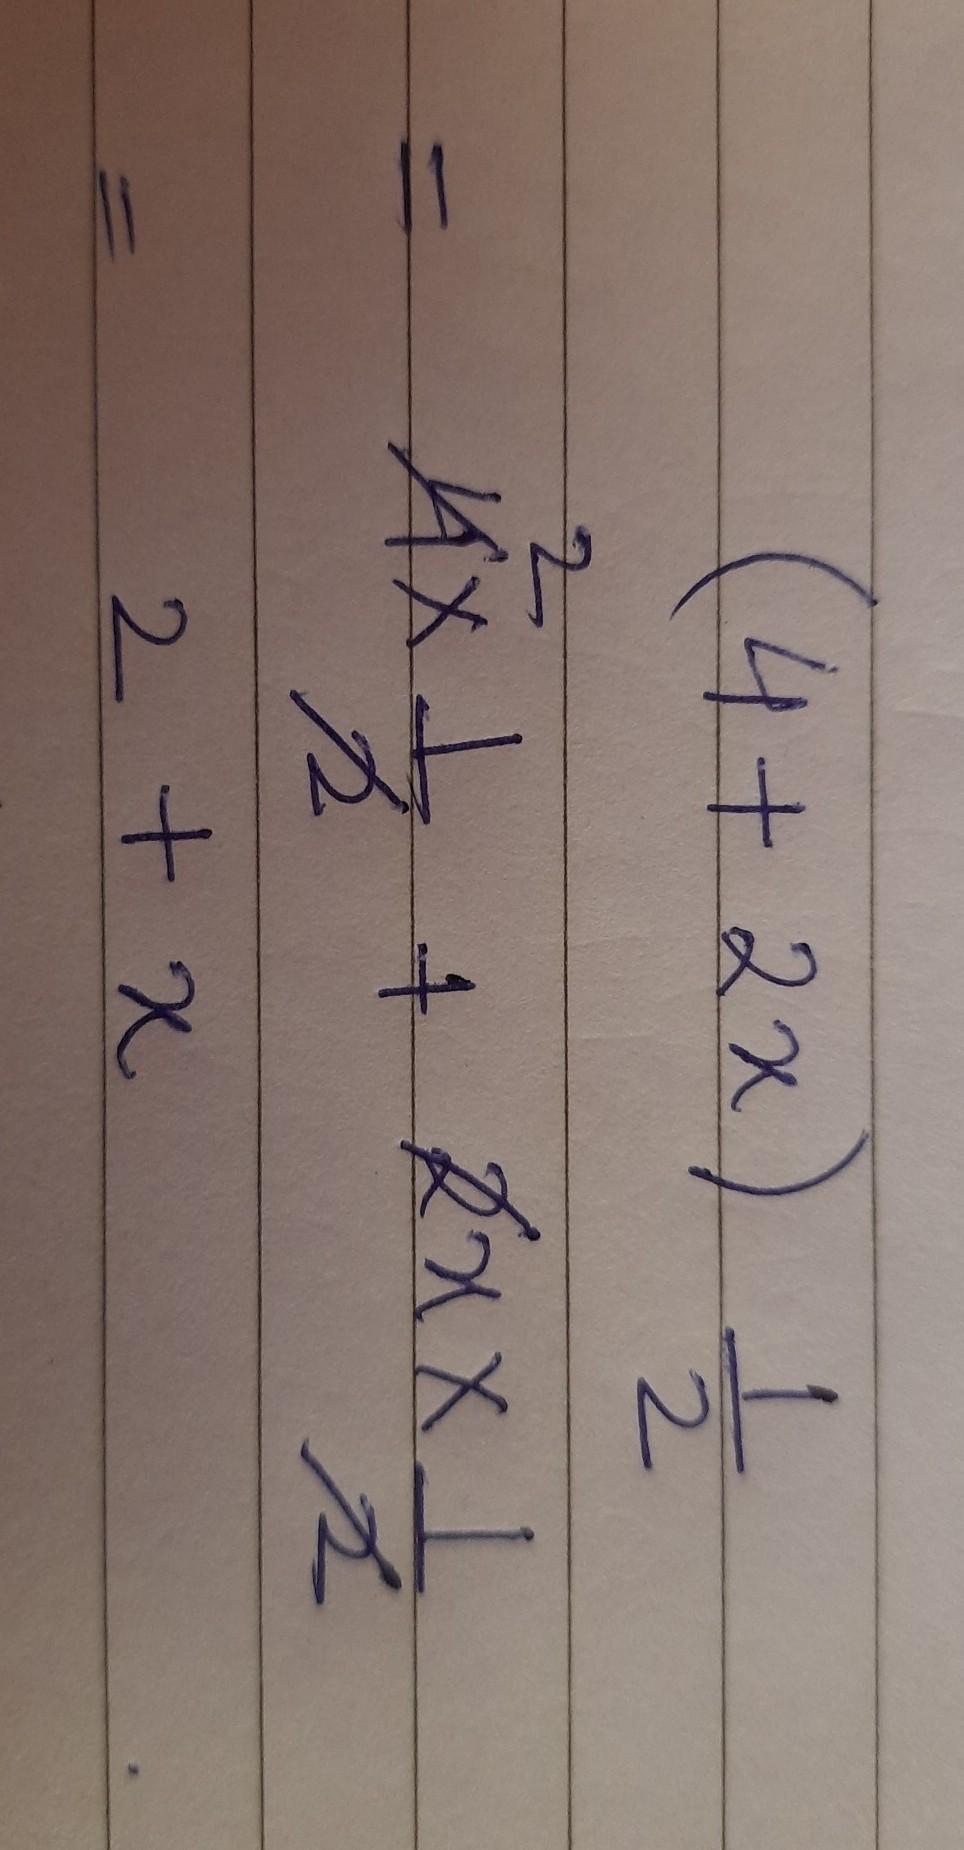 (4 + 2x) 1/2
= 4 2 × 1/2 + 2x × 1/2
= 2 + x